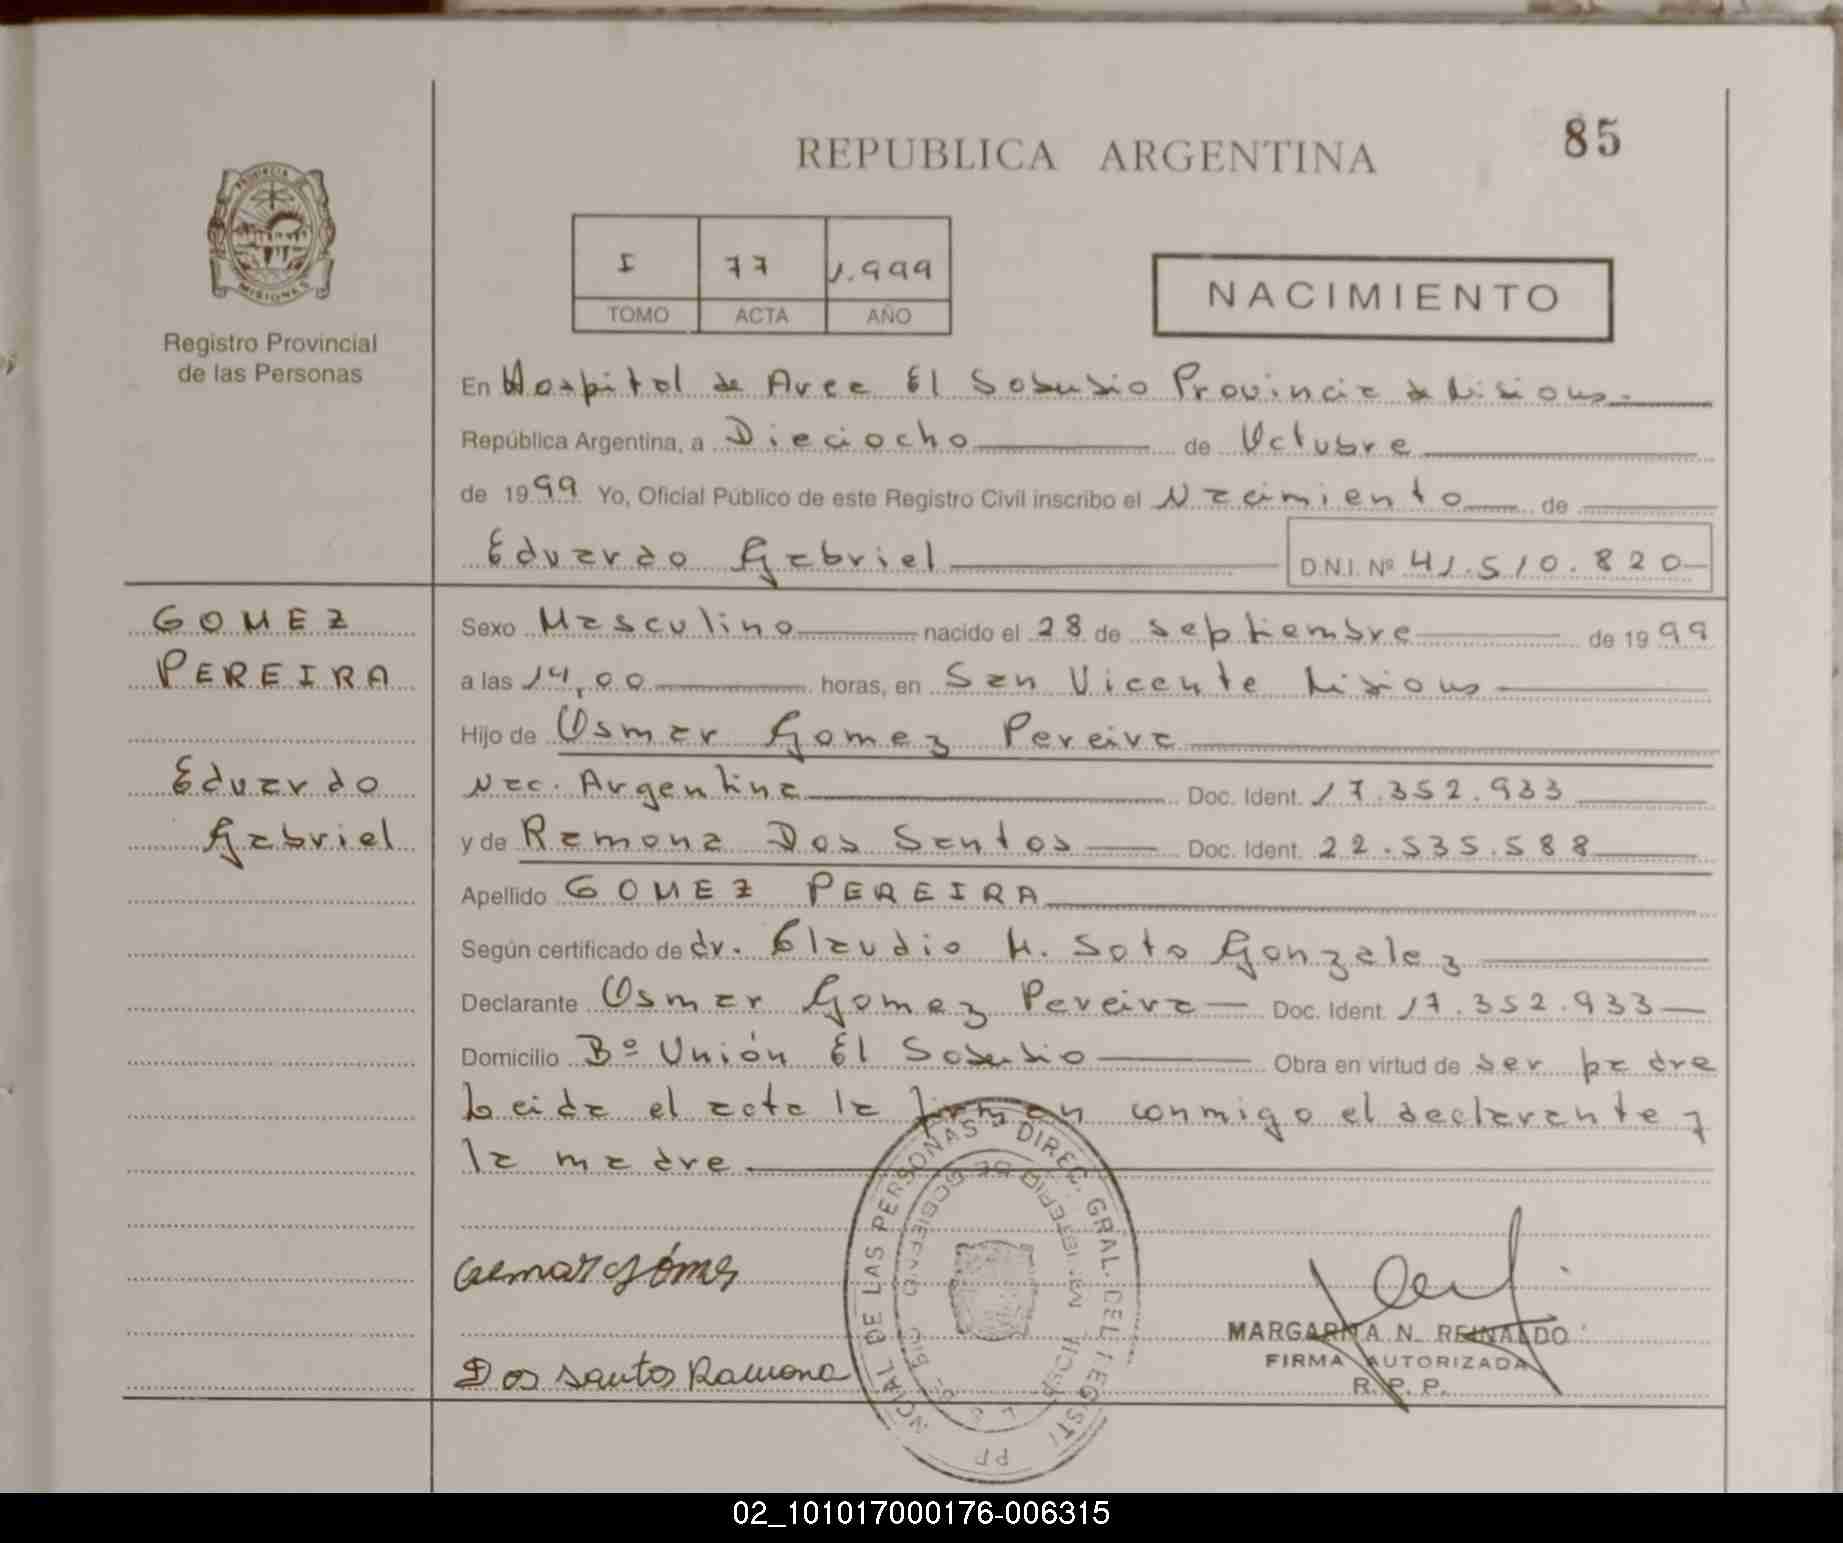 REPUBLICA ARGENTINA
85
PROVINCIA DE
MISIONES
Registro Provincial
de las Personas
I 77 1.999
TOMO ACTA AÑO
NACIMIENTO
En Hospital de Area El Soberbio Provincia de Misiones.
República Argentina, a Dieciocho de Octubre
de 1999 Yo, Oficial Público de este Registro Civil inscribo el Nacimiento de
Eduardo Gabriel D.N.I. Nº 41.510.820
GOMEZ
PEREIRA
Eduardo
Gabriel
Sexo Masculino nacido el 28 de septiembre de 1999
a las 14,00 horas, en San Vicente Misiones
Hijo de Osmar Gomez Pereira
Nac. Argentina Doc. Ident. 17.352.933
y de Ramona Dos Santos Doc. Ident. 22.535.588
Apellido GOMEZ PEREIRA
Según certificado de dr. Claudio M. Soto Gonzalez
Declarante Osmar Gomez Pereira Doc. Ident. 17.352.933
Domicilio Bº Unión El Soberbio Obra en virtud de ser padre
Leida el acta la firman conmigo el declarante y
la madre
NCIAL DE LAS PERSONAS DIREC. GRAL. DEL REGISTR
MINISTERIO DE GOBIERNO
Dos santos Ramona
MARGARITA N. REINALDO
FIRMA AUTORIZADA
R. P. P.
02_101017000176-006315